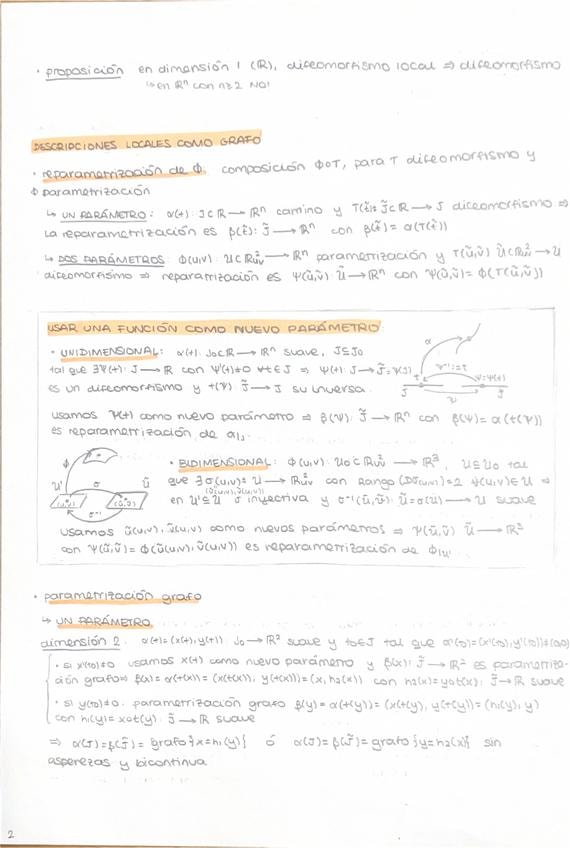 · proposición en dimensión 1 (ℝ), difeomorfismo local ⇒ difeomorfismo
↳ en ℝⁿ con n≥2 NO!
DESCRIPCIONES LOCALES COMO GRAFO
· reparametrización de Φ: composición Φ∘T, para T difeomorfismo y
Φ parametrización
↳ UN PARÁMETRO: α(t): J⊂ℝ → ℝⁿ camino y T(t̃): J̃⊂ℝ → J difeomorfismo ⇒
La reparametrización es β(t̃): J̃ → ℝⁿ con β(t̃) = α(T(t̃))
↳ DOS PARÁMETROS: Φ(u,v): U⊂ℝ²uv → ℝⁿ parametrización y T(ũ,ṽ) Ũ⊂ℝ²ũṽ → U
difeomorfismo ⇒ reparametrización es Ψ(ũ,ṽ): Ũ → ℝⁿ con Ψ(ũ,ṽ) = Φ(T(ũ,ṽ))
USAR UNA FUNCIÓN COMO NUEVO PARÁMETRO
· UNIDIMENSIONAL: α(t): J₀⊂ℝ → ℝⁿ suave, J⊆J₀
tal que ∃Ψ(t): J → ℝ con Ψ'(t)≠0 ∀t∈J ⇒ Ψ(t): J → J̃=Ψ(J)
es un difeomorfismo y t(Ψ): J̃ → J su inversa.
α
Ψ⁻¹:=τ
t
Ψ=Ψ(t)
J
Ψ
J̃
usamos Ψ(t) como nuevo parámetro ⇒ β(Ψ): J̃ → ℝⁿ con β(Ψ) = α(t(Ψ))
es reparametrización de α|J.
Φ
U'
σ
Ũ
(u,v)
(ũ,ṽ)
σ⁻¹
· BIDIMENSIONAL: Φ(u,v): U₀⊂ℝ²uv → ℝ³, U⊆U₀ tal
que ∃σ(u,v)= U → ℝ²uv con Rango (Dσ(u,v))=2 ∀(u,v)∈U ⇒
(ũ(u,v),ṽ(u,v))
en U'⊆U σ inyectiva y σ⁻¹(ũ,ṽ): Ũ=σ(U) → U suave
usamos ũ(u,v), ṽ(u,v) como nuevos parámetros ⇒ Ψ(ũ,ṽ) Ũ → ℝ³
con Ψ(ũ,ṽ) = Φ(ũ(u,v),ṽ(u,v)) es reparametrización de Φ|U'
· parametrización grafo
↳ UN PARÁMETRO
dimensión 2. α(t)=(x(t),y(t)): J₀ → ℝ² suave y t₀∈J tal que α'(t₀)=(x'(t₀),y'(t₀))≠(0,0)
· si x'(t₀)≠0 usamos x(t) como nuevo parámetro y β(x): J̃ → ℝ² es parametriza-
ción grafo ⇒ β(x) = α(t(x)) = (x(t(x)), y(t(x))) = (x, h₂(x)) con h₂(x)=y∘t(x): J̃ → ℝ suave
· si y(t₀)≠0. parametrización grafo β(y) = α(t(y)) = (x(t(y), y(t(y)) = (h₁(y), y)
con h₁(y) = x∘t(y): J̃ → ℝ suave
⇒ α(J) = β(J̃) = grafo {x=h₁(y)} ó α(J) = β(J̃) = grafo {y=h₂(x)} sin
asperezas y bicontinua.
2